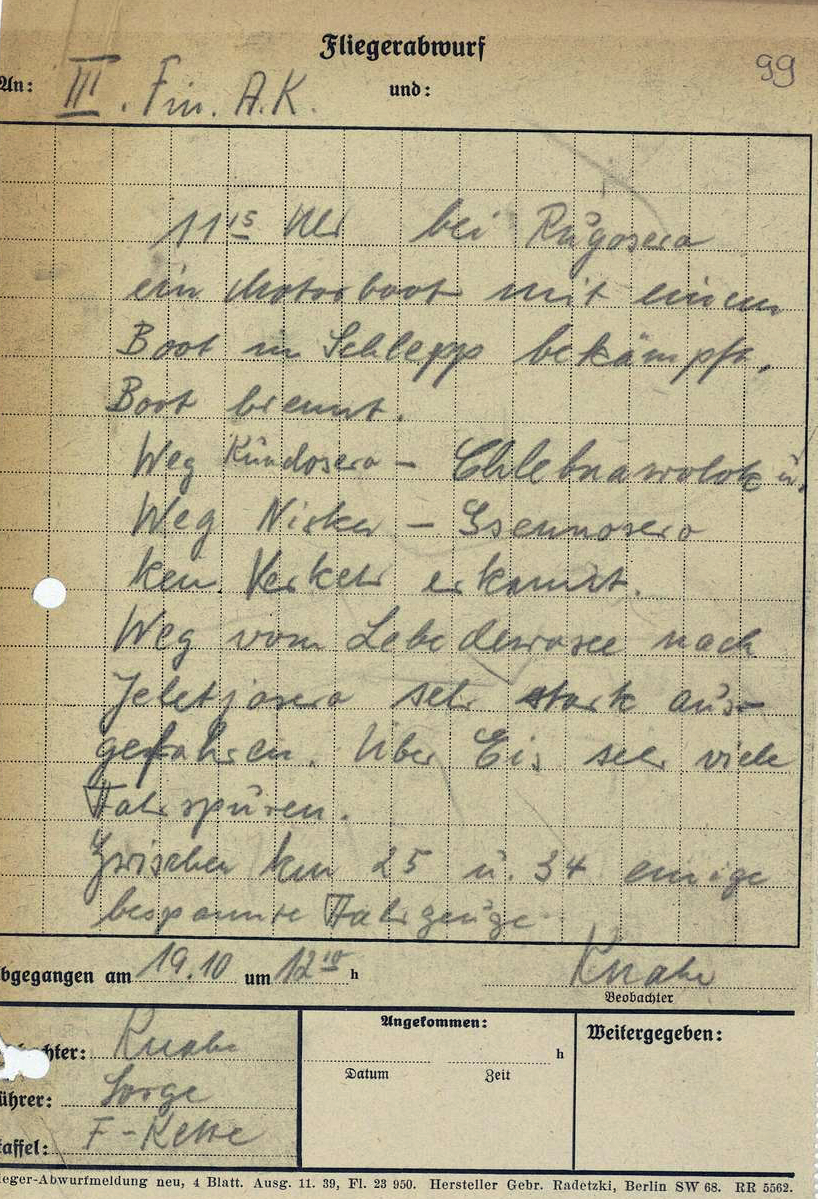 Fliegerabwurf
99
An: III. Fin. A.K. und:
11 15 Uhr bei Rugosero
ein Motorboot mit einem
Boot im Schlepp bekämpft.
Boot brennt.
Weg Kundosero - Chlebnawolok u.
Weg Nisker - Ssennosero
kein Verkehr erkannt.
Weg vom Lebedewosee nach
Jeletjosero sehr stark aus-
gefahren. Über Eis sehr viele
Fahrspuren.
Zwischen km 25 u. 34 einige
bespannte Fahrzeuge
bgegangen am 19.10 um 12 10 h Knabe
Beobachter
chter: Knabe
Angekommen:
Weitergegeben:
h
ührer: Sorge
Datum Zeit
affel: F-Kette
ieger-Abwurfmeldung neu, 4 Blatt. Ausg. 11. 39, Fl. 23 950. Hersteller Gebr. Radetzki, Berlin SW 68. RR 5562.